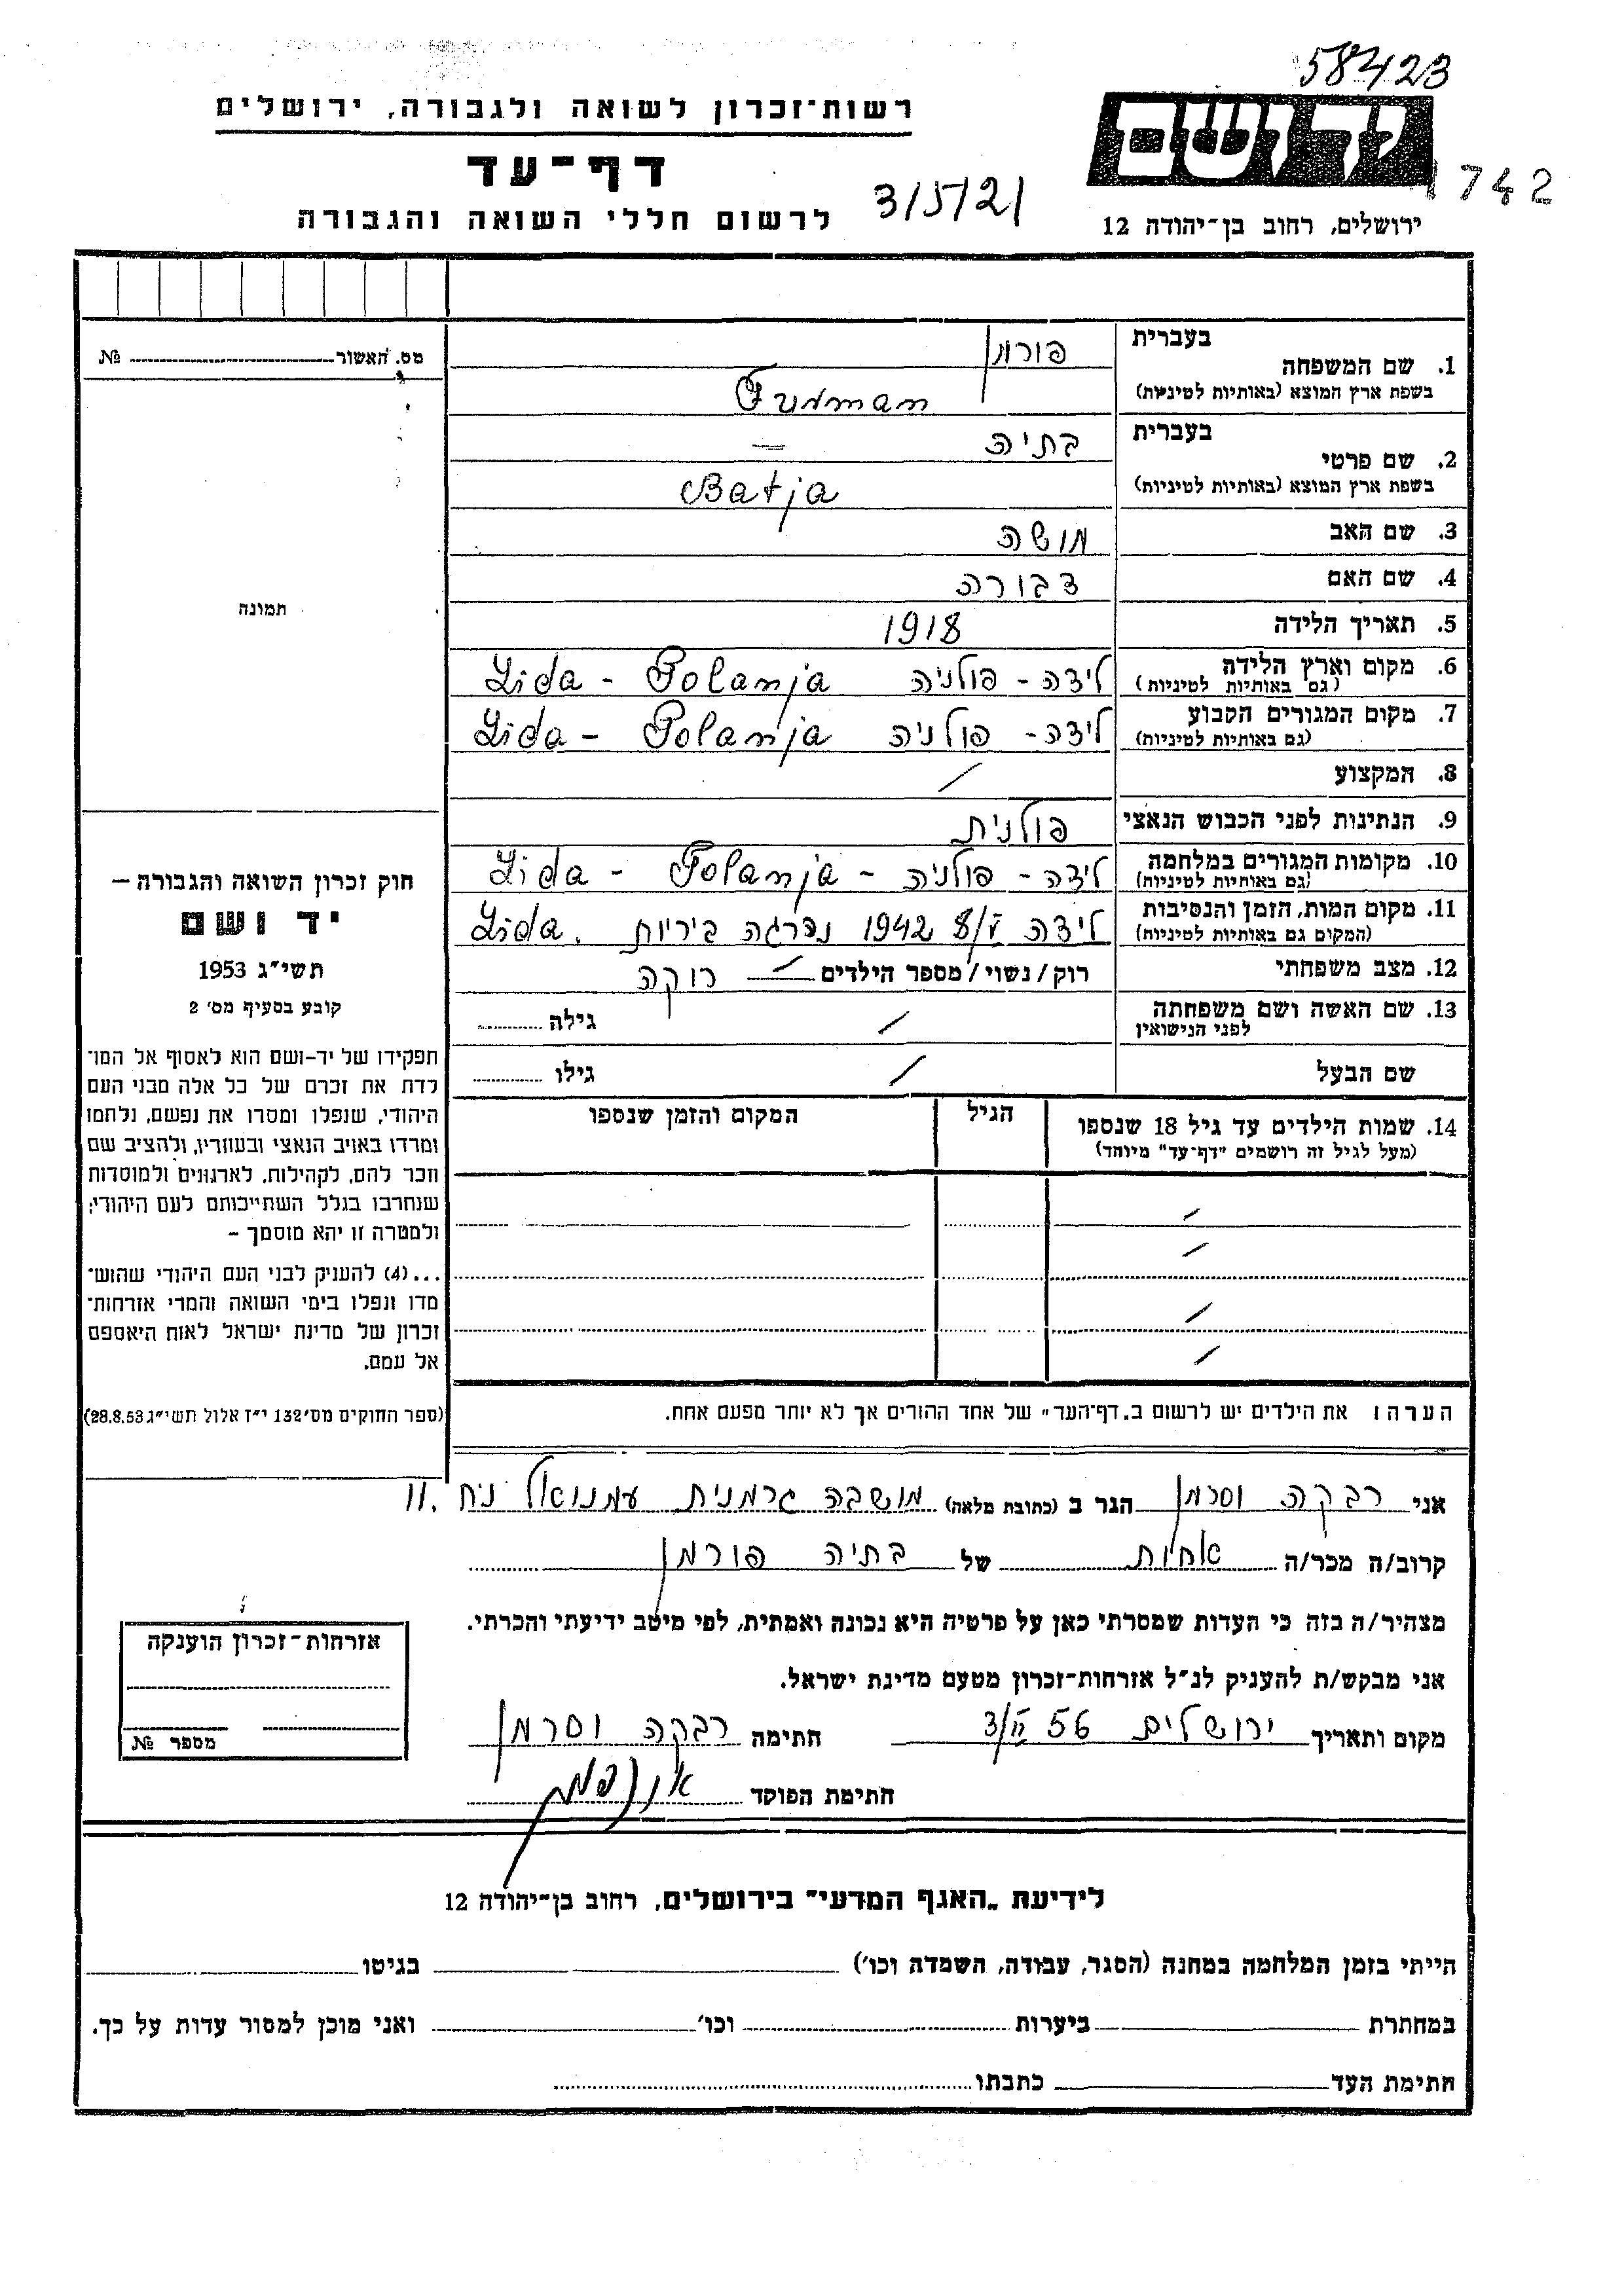 58423
רשות־זכרון לשואה ולגבורה, ירושלים
יד ושם
דף־עד
742
3/5/21
לרשום חללי השואה והגבורה
ירושלים, רחוב בן־יהודה 12
מס. האשור № 
1. שם המשפחה בעברית פורמן
בשפת ארץ המוצא (באותיות לטיניות) Furman
2. שם פרטי בעברית בתיה
בשפת ארץ המוצא (באותיות לטיניות) Batja
3. שם האב מושה
4. שם האם דבורה
תמונה
5. תאריך הלידה 1918
6. מקום וארץ הלידה (גם באותיות לטיניות) לידה - פולניה Lida - Polanja
7. מקום המגורים הקבוע (גם באותיות לטיניות) לידה - פולניה Lida - Polanja
8. המקצוע /
9. הנתינות לפני הכבוש הנאצי פולנית
10. מקומות המגורים במלחמה (גם באותיות לטיניות) לידה - פולניה - Lida - Polanja
11. מקום המות, הזמן והנסיבות (המקום גם באותיות לטיניות) לידה 8/V 1942 נהרגה ביריות. Lida
12. מצב משפחתי רוק/נשוי/מספר הילדים / רוקה
13. שם האשה ושם משפחתה לפני הנישואין / גילה
שם הבעל / גילו
חוק זכרון השואה והגבורה –
יד ושם
תשי״ג 1953
קובע בסעיף מס׳ 2
תפקידו של יד-ושם הוא לאסוף אל המו־
לדת את זכרם של כל אלה מבני העם
היהודי, שנפלו ומסרו את נפשם, נלחמו
ומרדו באויב הנאצי ובעוזריו, ולהציב שם
וזכר להם, לקהילות, לארגונים ולמוסדות
שנחרבו בגלל השתייכותם לעם היהודי;
ולמטרה זו יהא מוסמך –
...(4) להעניק לבני העם היהודי שהוש־
מדו ונפלו בימי השואה והמרי אזרחות־
זכרון של מדינת ישראל לאות היאספם
אל עמם.
(ספר החוקים מס׳ 132 י״ז אלול תשי״ג 28.8.53)
14. שמות הילדים עד גיל 18 שנספו הגיל המקום והזמן שנספו
(מעל לגיל זה רושמים "דף־עד" מיוחד)
/
/
/
/
הערה: את הילדים יש לרשום ב„דף־העד״ של אחד ההורים אך לא יותר מפעם אחת.
אני רבקה וסרמן הגר ב (כתובת מלאה) מושבה גרמנית עמנואל נח 11.
קרוב/ה מכר/ה אחות של בתיה פורמן
מצהיר/ה בזה כי העדות שמסרתי כאן על פרטיה היא נכונה ואמתית, לפי מיטב ידיעתי והכרתי.
אני מבקש/ת להעניק לנ״ל אזרחות־זכרון מטעם מדינת ישראל.
מקום ותאריך ירושלים 3/II 56 חתימה רבקה וסרמן
חתימת הפוקד
אזרחות־זכרון הוענקה
מספר №
לידיעת „האגף המדעי״ בירושלים, רחוב בן־יהודה 12
הייתי בזמן המלחמה במחנה (הסגר, עבודה, השמדה וכו׳) בגיטו
במחתרת ביערות וכו׳ ואני מוכן למסור עדות על כך.
חתימת העד כתבתו